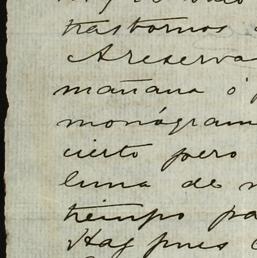 trastornos
A reserva
mañana ó
monógram
cierto pero
luna de
tiempo pa
Hay pues